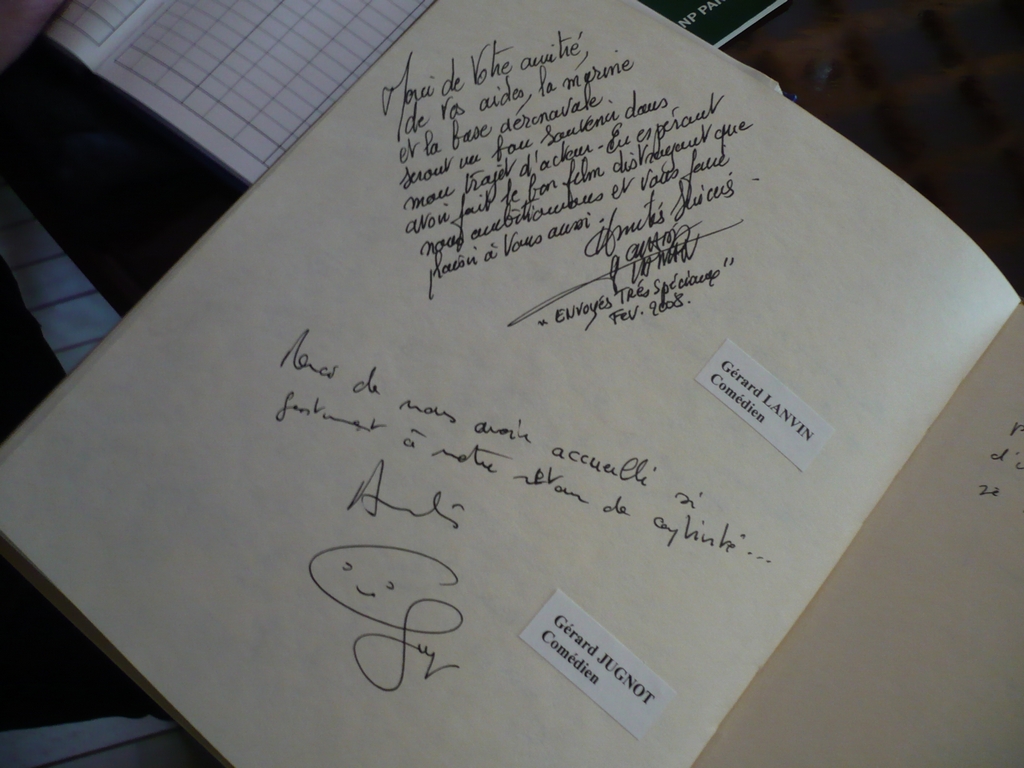 Merci de Votre amitié,
de vos aides, la marine
et la base aéronavale.
seront un bon souvenir dans
mon trajet d'acteur - En espérant
avoir fait le bon film distrayant que
nous ambitionnons et vous faire
plaisir à vous aussi.
Amitiés Sincères
"ENVOYÉS TRÈS SPÉCIAUX"
FEV. 2008.
Gérard LANVIN
Comédien
Merci de nous avoir accueilli si
gentiment à notre retour de captivité...
Amitiés
Gérard JUGNOT
Comédien
NP PAR